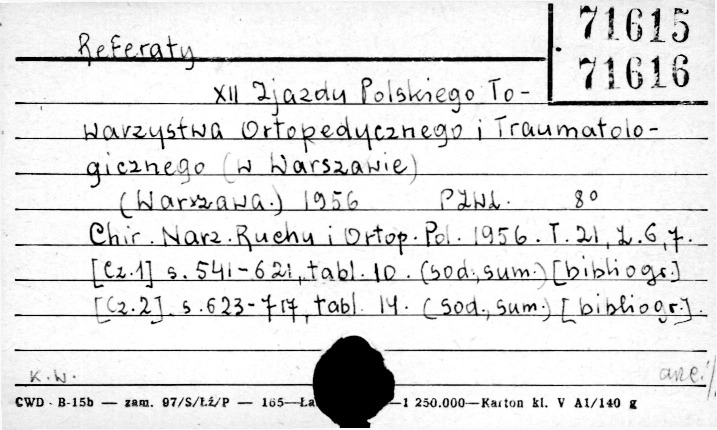 Referaty
71615
71616
XII Zjazdu Polskiego To-
warzystwa Ortopedycznego i Traumatolo-
gicznego (w Warszawie)
(Warszawa.) 1956 PZWL. 8º
Chir. Narz. Ruchu i Ortop. Pol. 1956. T. 21, Z. 6, 7.
[Cz.1] s. 541-621, tabl. 10. (sod., sum.) [bibliogr.]
[Cz.2]. s. 623-717, tabl. 14. (sod., sum.) [bibliogr.].
K.W.
CWD - B-15b — zam. 97/S/Łź/P — 165—Ła —1 250.000—Karton kl. V A1/140 g